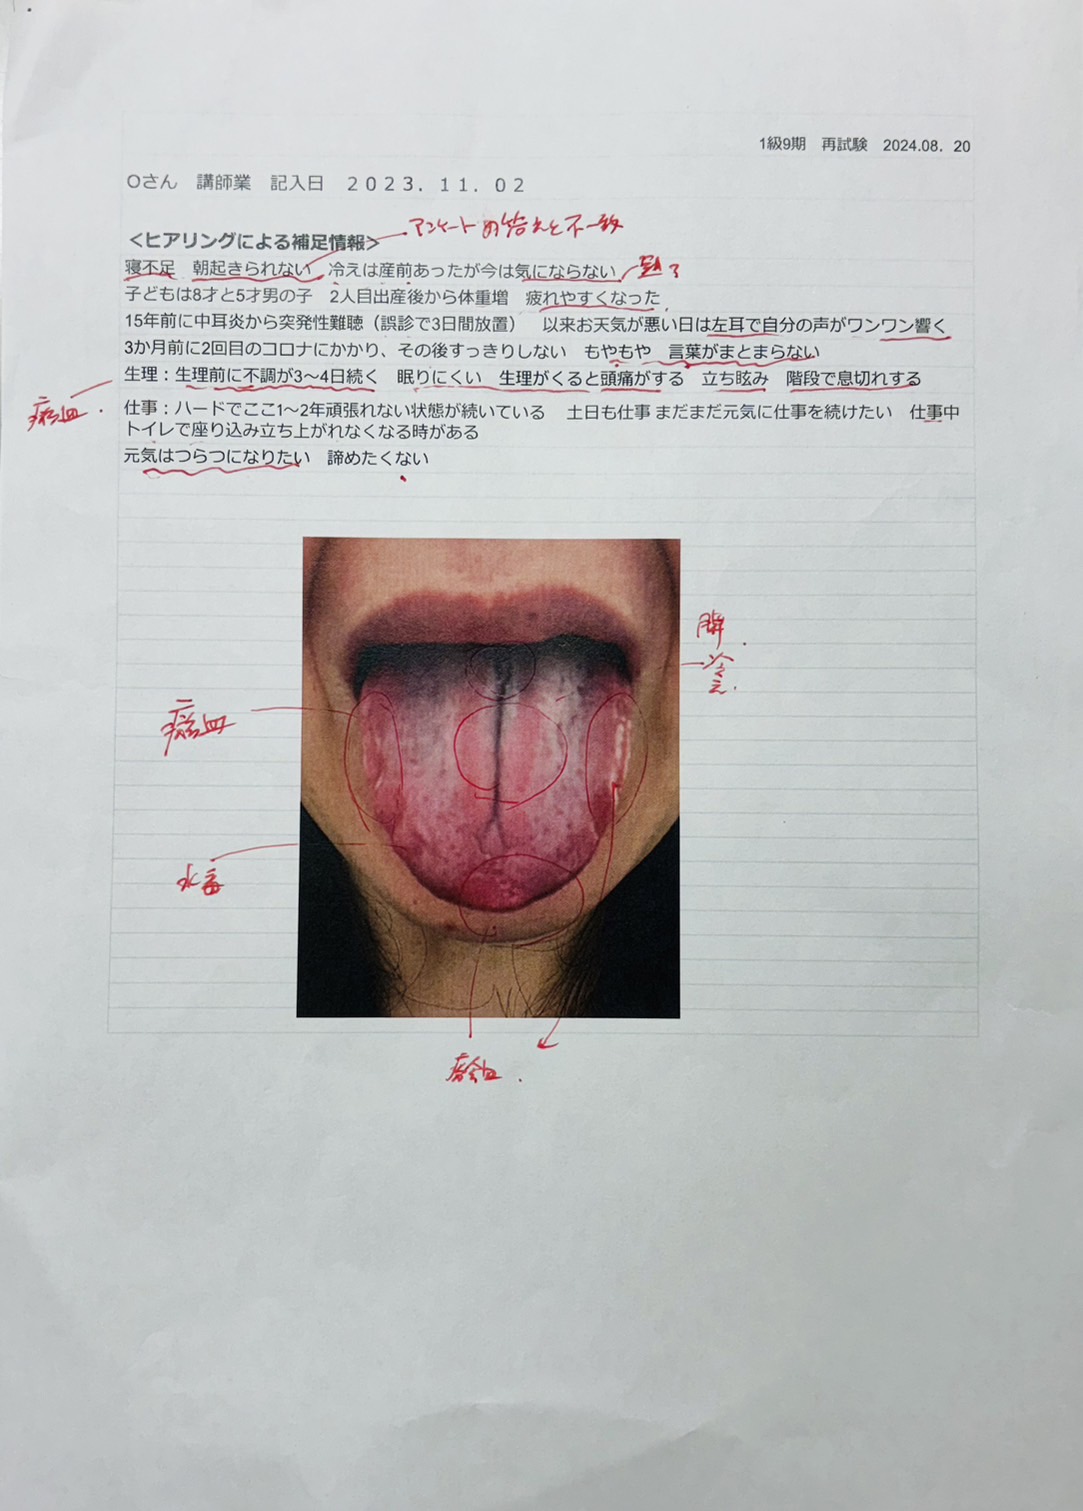 1級9期　再試験　2024.08．20
Oさん　講師業　記入日　２０２３．１１．０２
アンケートの答えと不一致
＜ヒアリングによる補足情報＞
寝不足　朝起きられない　冷えは産前あったが今は気にならない
子どもは8才と5才男の子　2人目出産後から体重増　疲れやすくなった
15年前に中耳炎から突発性難聴（誤診で3日間放置）　以来お天気が悪い日は左耳で自分の声がワンワン響く
3か月前に2回目のコロナにかかり、その後すっきりしない　もやもや　言葉がまとまらない
生理：生理前に不調が3～4日続く　眠りにくい　生理がくると頭痛がする　立ち眩み　階段で息切れする
瘀血
仕事：ハードでここ1～2年頑張れない状態が続いている　土日も仕事 まだまだ元気に仕事を続けたい　仕事中
トイレで座り込み立ち上がれなくなる時がある
元気はつらつになりたい　諦めたくない
冷え
瘀血
水毒
瘀血